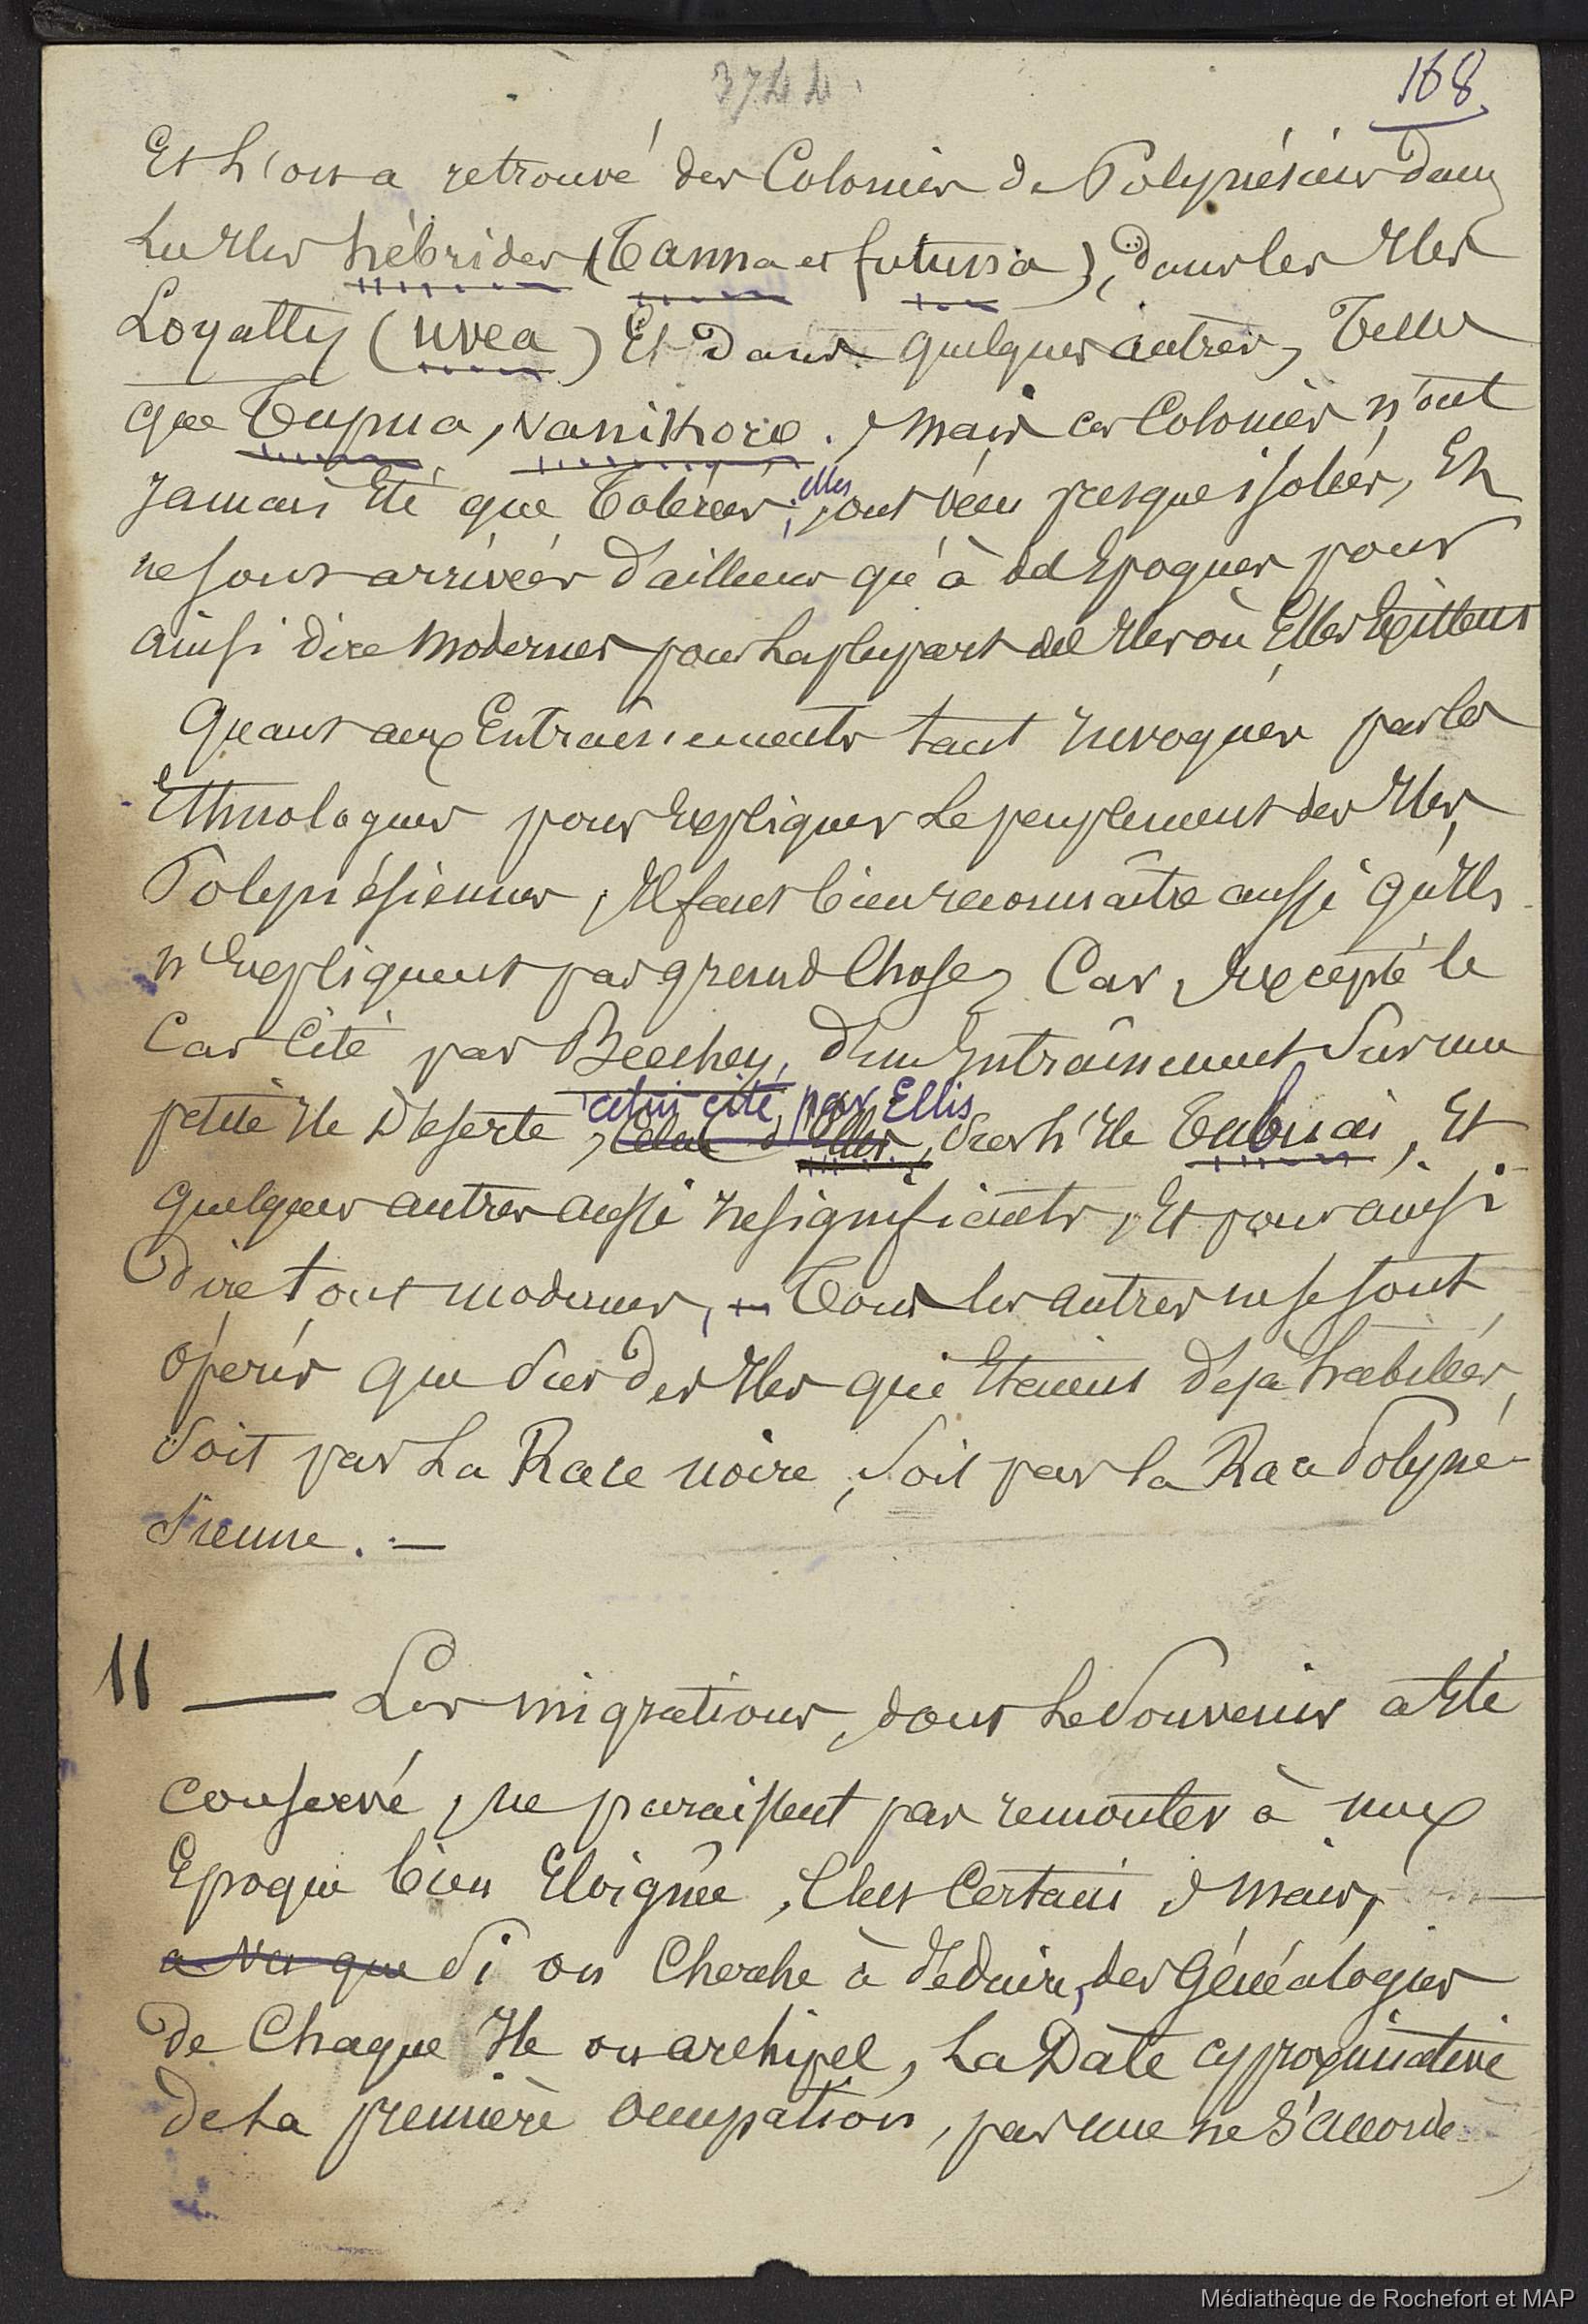 3744.
168
Et l'on a retrouvé des Colonies de Polynésiens dans
les Iles hébrides (Tanna et futuna), dans les Iles
Loyalty (uvea) Et dans quelques autres, Telles
que Tupua, vanikoro. Mais ces Colonies n'ont
jamais Eté que Tolérées; elles ont vécu presque isolées, Et
ne sont arrivées d'ailleurs qu'à des Epoques pour
ainsi dire modernes pour la plupart des Iles où Elles Existent
Quant aux Entraînements tant invoqués par les
Ethnologues pour Expliquer le peuplement des Iles
Polynésiennes, Il faut bien reconnaître aussi qu'Ils
n'Expliquent pas grand Chose, Car, Excepté le
Cas Cité par Beechey, d'un Entraînement Sur une
petite Ile Déserte, celui cité par Ellis
Celui d'Ellis, Sur l'Ile Tubuai, Et
quelques autres aussi Insignifiants, Et pour ainsi
dire tout modernes, — Tous les autres ne se sont
opérés que Sur des Iles qui Etaient déjà habitées,
Soit par La Race noire, Soit par la Race Polyné-
Sienne. —
11 — Les migrations, dont Le Souvenir a Eté
conservé, ne paraissent pas remonter à une
Epoque bien Eloignée, C'est Certain; Mais,
a vu que Si on Cherche à déduire, des Généalogies
de Chaque Ile ou archipel, La Date approximative
de La première occupation, pas une ne S'accorde
Médiathèque de Rochefort et MAP